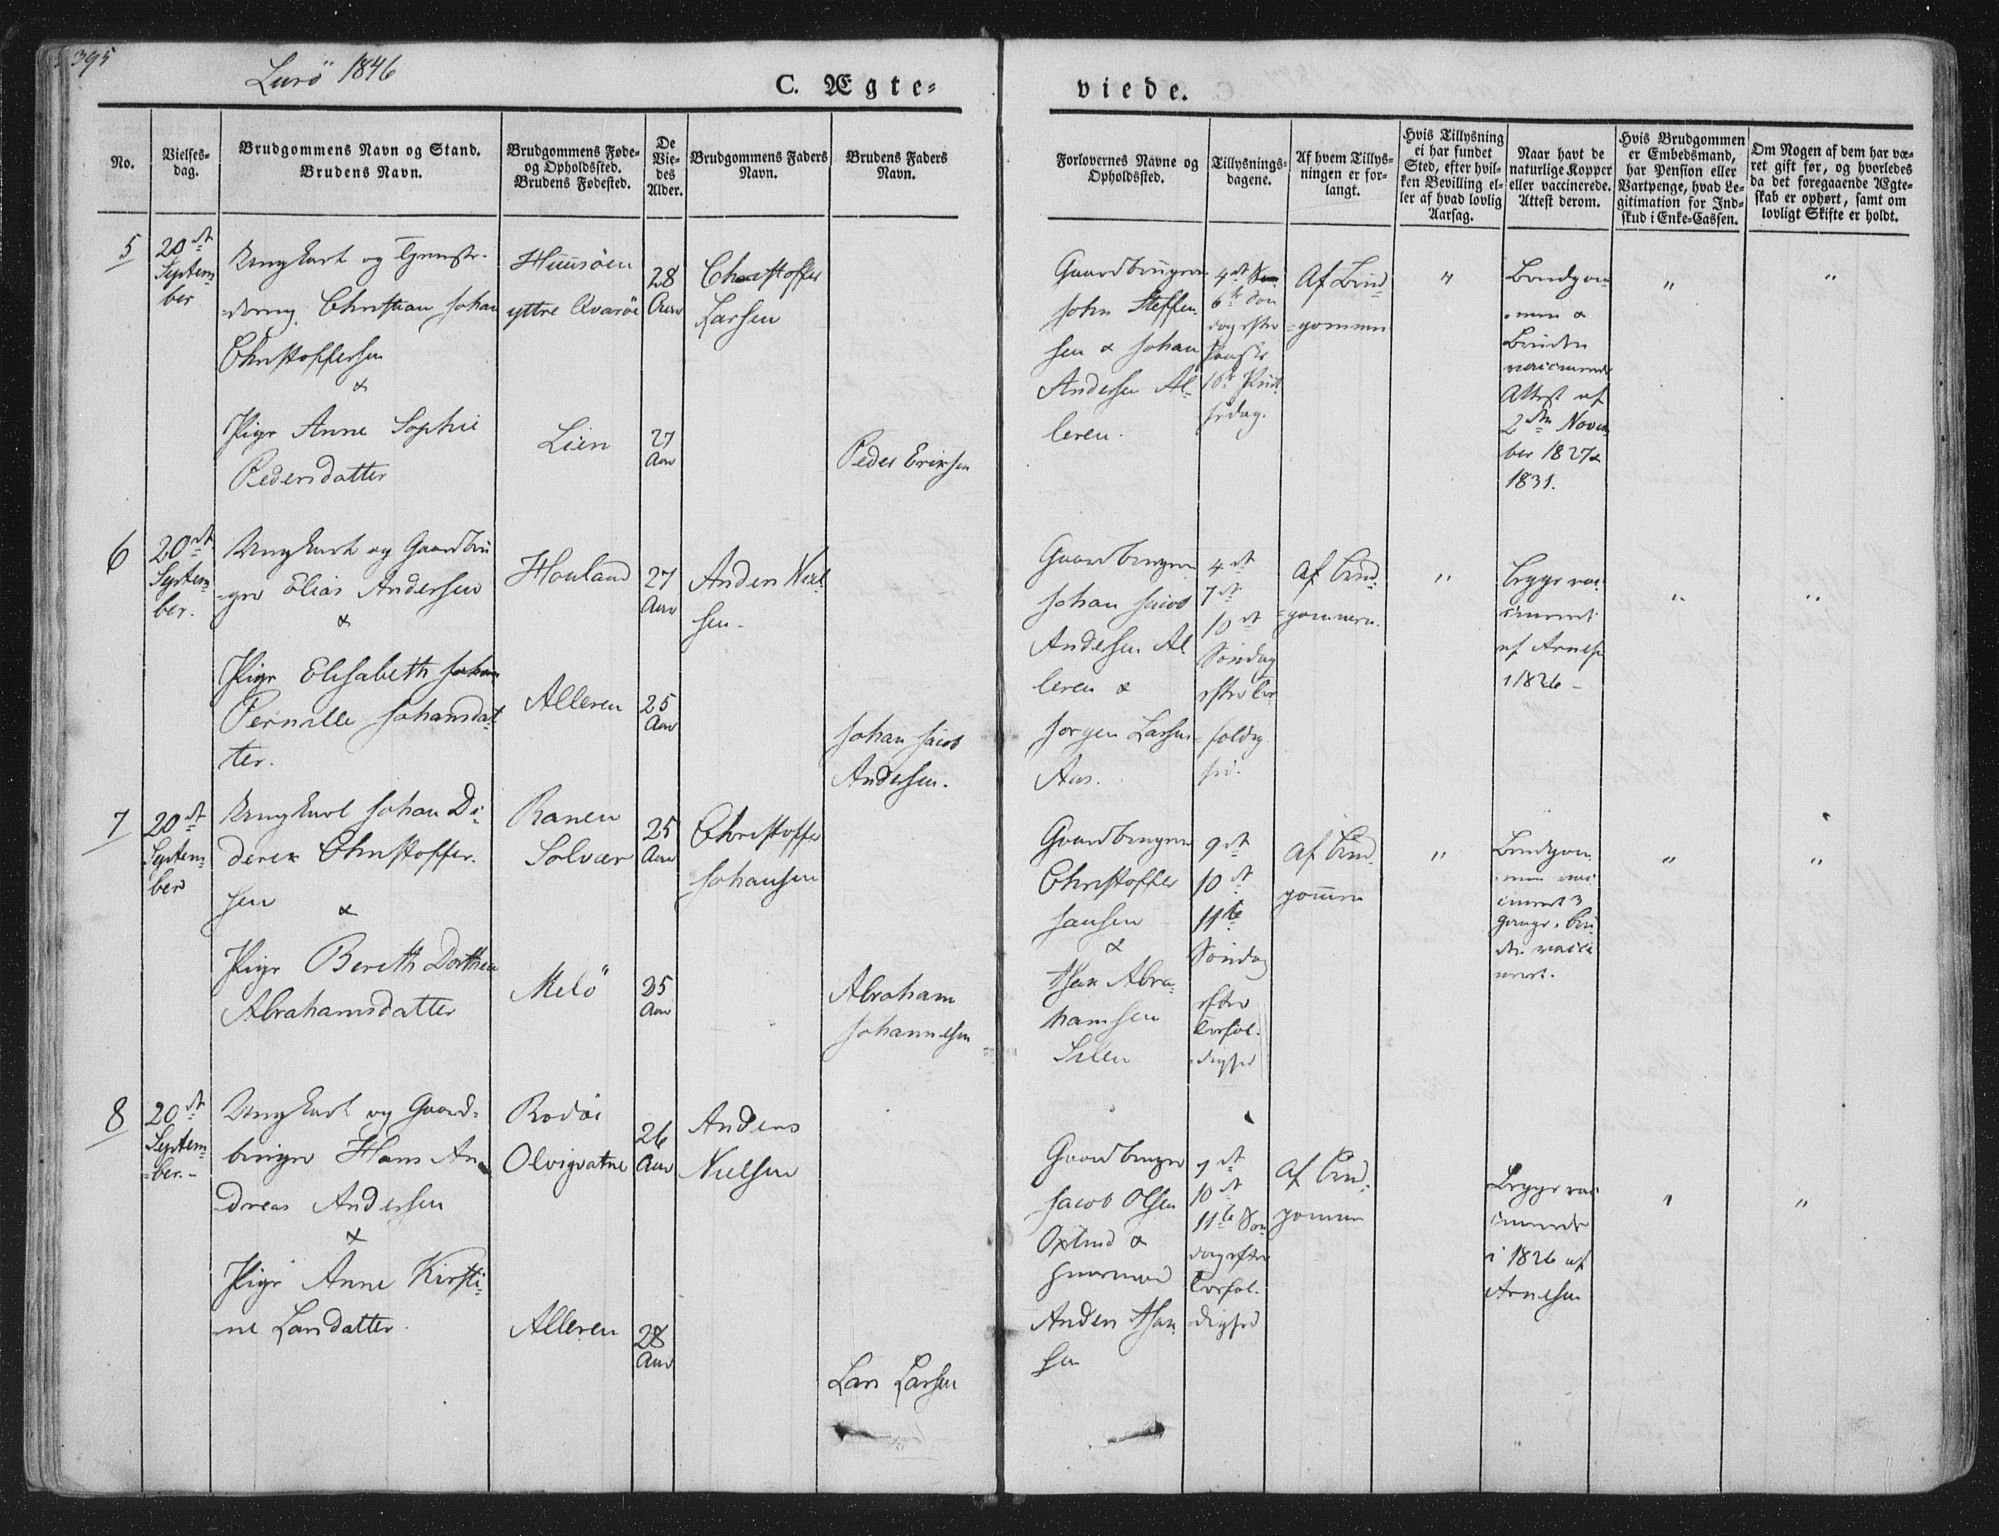 395
Lurö 1846
C. Ægte-
viede.
No.
Vielses-
dag.
Brudgommens Navn og Stand.
Brudens Navn.
Brudgommens Føde-
og Opholdssted.
Brudens Fødested.
De
Vie-
des
Alder.
Brudgommens Faders
Navn.
Brudens Faders
Navn.
Forlovernes Navne og
Opholdssted.
Tillysnings-
dagene.
Af hvem Tillys-
ningen er for-
langt.
Hvis Tillysning
ei har fundet
Sted, efter hvil-
ken Bevilling el-
ler af hvad lovlig
Aarsag.
Naar havt de
naturlige Kopper
eller vaccinerede.
Attest derom.
Hvis Brudgommen
er Embedsmand,
har Pension eller
Vartpenge, hvad Le-
gitimation for Ind-
skud i Enke-Cassen.
Om Nogen af dem har væ-
ret gift før, og hvorledes
da det foregaaende Ægte-
skab er ophørt, samt om
lovligt Skifte er holdt.
5
20de
Septem-
ber
Ungkarl og
Christian Johan
Christoffersen
&
Pige Anne Sophie
Pedersdatter
Huusöen
yttre Qvaröe
Lien
28
Aar
27
Aar
Christoffer
Larsen
Peder Eriksen
Gaardbruger
John Steffen
sen & Johan
Andersen Al-
leren.
4de
6te Søn
dag efter
Af Brud-
gommen
"
Brudgom-
men &
Bruden
vaccinerede
Attest af
2den Novem
ber 1827 &
1831.
"
"
6
20de
Septem-
ber.
Ungkarl og Gaardbru
ger Elias Andersen
&
Pige Elisabeth
Pernille Johansdat
ter.
Houland
Alleren
27
Aar
25
Aar
Anders Niel
sen.
Johan Jacob
Andersen.
Gaardbruger
Johan Jacob
Andersen Al
leren &
Jørgen Larsen
Aas.
4de
7de
10de
Søndag
efter Tre-
foldig
hed.
Af Brud-
gommen.
"
Begge vac
cineret
af Arnesen
i 1826 -
"
"
7
20de
Septem-
ber
Ungkarl Johan Di-
derik Christoffer-
sen
&
Pige Bereth Dorthea
Abrahamsdatter
Ranen
Solvær
Melö
25
Aar
25
Aar
Christoffer
Johansen
Abraham
Johannesen
Gaardbruger
Christoffer
Jansen
&
Isak Abra-
hamsen
Selen
9de
10de
11te
Søndag
efter
Trefol-
dighed
Af Brud-
gommen
"
Brudgom-
men vac
cineret 3
gange, Bru
den vacci
neret.
"
"
8
20de
Septem-
ber.-
Ungkarl og Gaard-
bruger Hans An-
dreas Andersen
&
Pige Anne Kirsti-
ne Larsdatter.
Rodöe
Olvigvatne
Alleren
26
Aar
28
Aar
Anders
Nielsen
Lars Larsen
Gaardbruger
Jacob Olsen
&
Anders Isak
sen
7de
10de
11te Søn
dag efter
Trefol-
dighed
Af Brud-
gommen
Begge vac
cinerede
i 1826 af
Arnesen
"
"